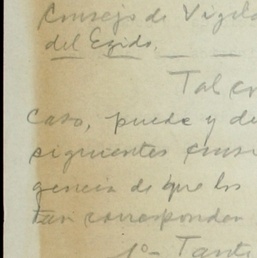 Consejo de Vigila
del Ejido.
Tal co
Caso, puede y de
siguientes cons
gencia de que los
tan corresponden
1º- Tant